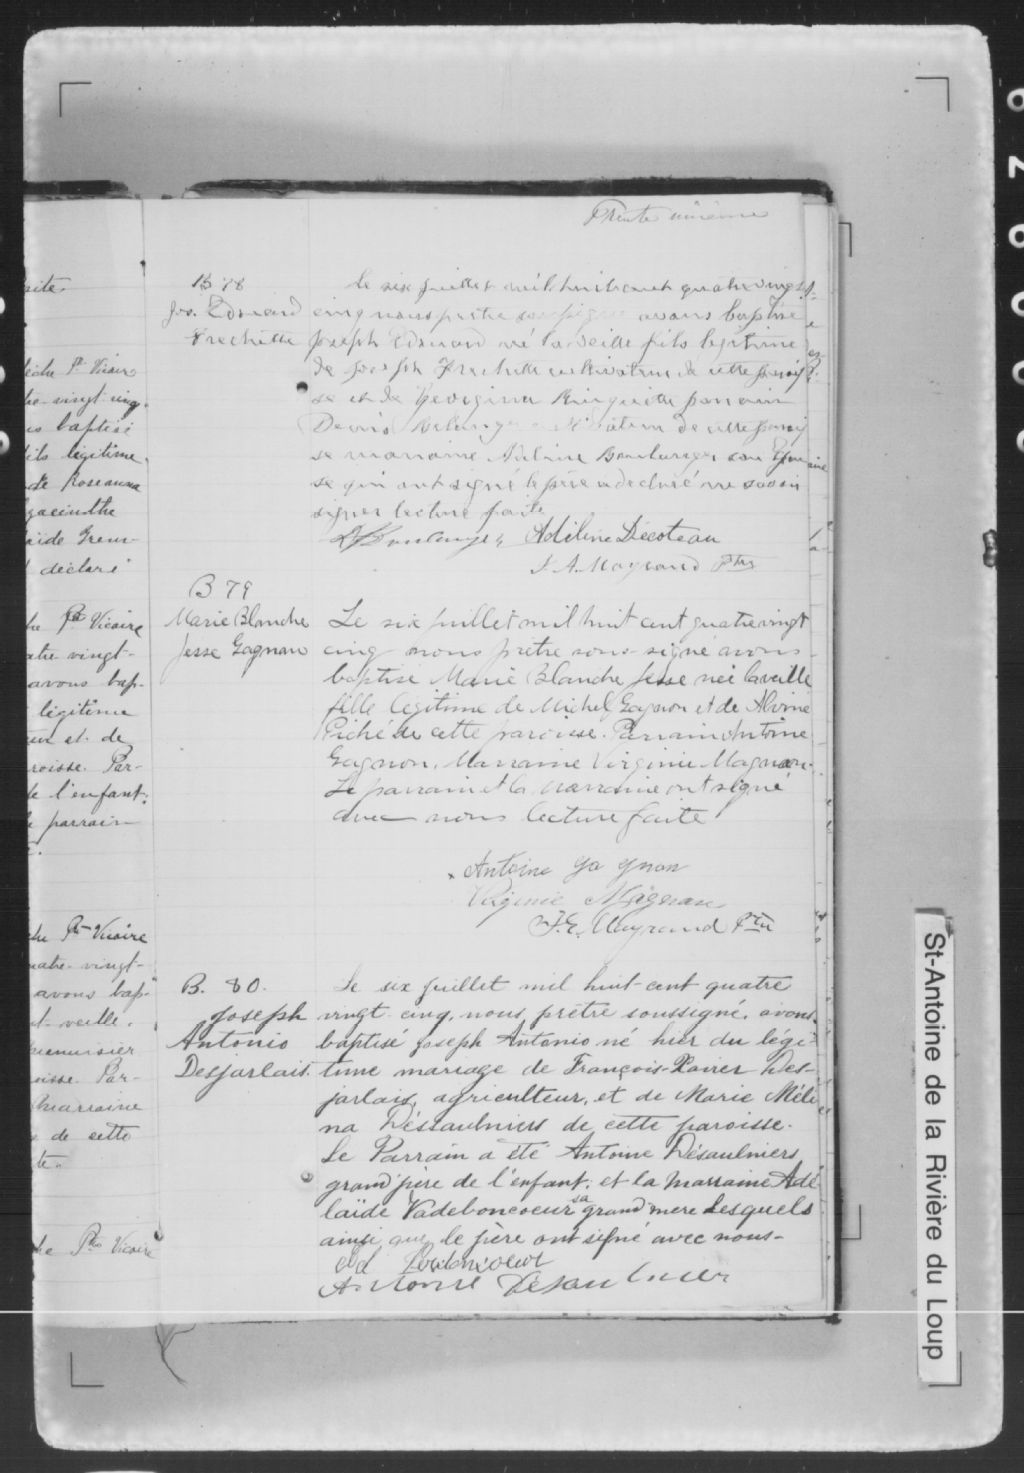 Trente unième
B 78
Jos. Edouard
Frechette
Le six juillet mil huit cent quatre vingt
cinq nous prêtre soussigné avons baptisé
Joseph Edouard né la veille fils légitime
de Joseph Frechette cultivateur de cette parois
se et de Georgina Ringuette parrain
Denis de cette parois
se marraine Adeline son Epou
se qui ont signé le père a déclaré ne savoir
signer lecture faite
Adeline Décoteau
Mayrand Ptre
B 79
Marie Blanche
Jesse Gagnon
Le six juillet mil huit cent quatre vingt
cinq nous prêtre sous-signé avons
baptisé Marie Blanche Jesse née la veille
fille légitime de Michel Gagnon et de Alvine
Piché de cette paroisse. Parrain Antoine
Gagnon. Marraine Virginie Magnan.
Le parrain et la marraine ont signé
avec nous lecture faite
Antoine Gagnon
Virginie Magnan
Mayrand Ptre
B. 80.
Joseph
Antonio
Desjarlais.
Le six juillet mil huit-cent quatre
vingt-cinq, nous, prêtre soussigné, avons
baptisé Joseph Antonio né hier du légi-
time mariage de François-Xavier Des-
jarlais, agriculteur, et de Marie Méli
na Désaulniers de cette paroisse.
Le Parrain a été Antoine Désaulniers
grand père de l'enfant; et la Marraine Adé
laïde Vadeboncoeur sa grand mere Lesquels
ainsi que le père ont signé avec nous-
Antoine Désaulnier
ite Pt Vicaire
he-vingt-cinq.
s baptisé
ils légitime
de Roseanna
yacinthe
aïde Gren-
déclaré
he Ptre Vicaire
atre vingt-
avons bap-
légitime
eur et de
roisse. Par-
de l'enfant;
e parrain
he Ptre Vicaire
uatre-vingt-
avons bap-
t-veille.
menuisier
oisse. Par-
marraine
de cette
te.
he Ptre Vicaire
St-Antoine de la Rivière du Loup